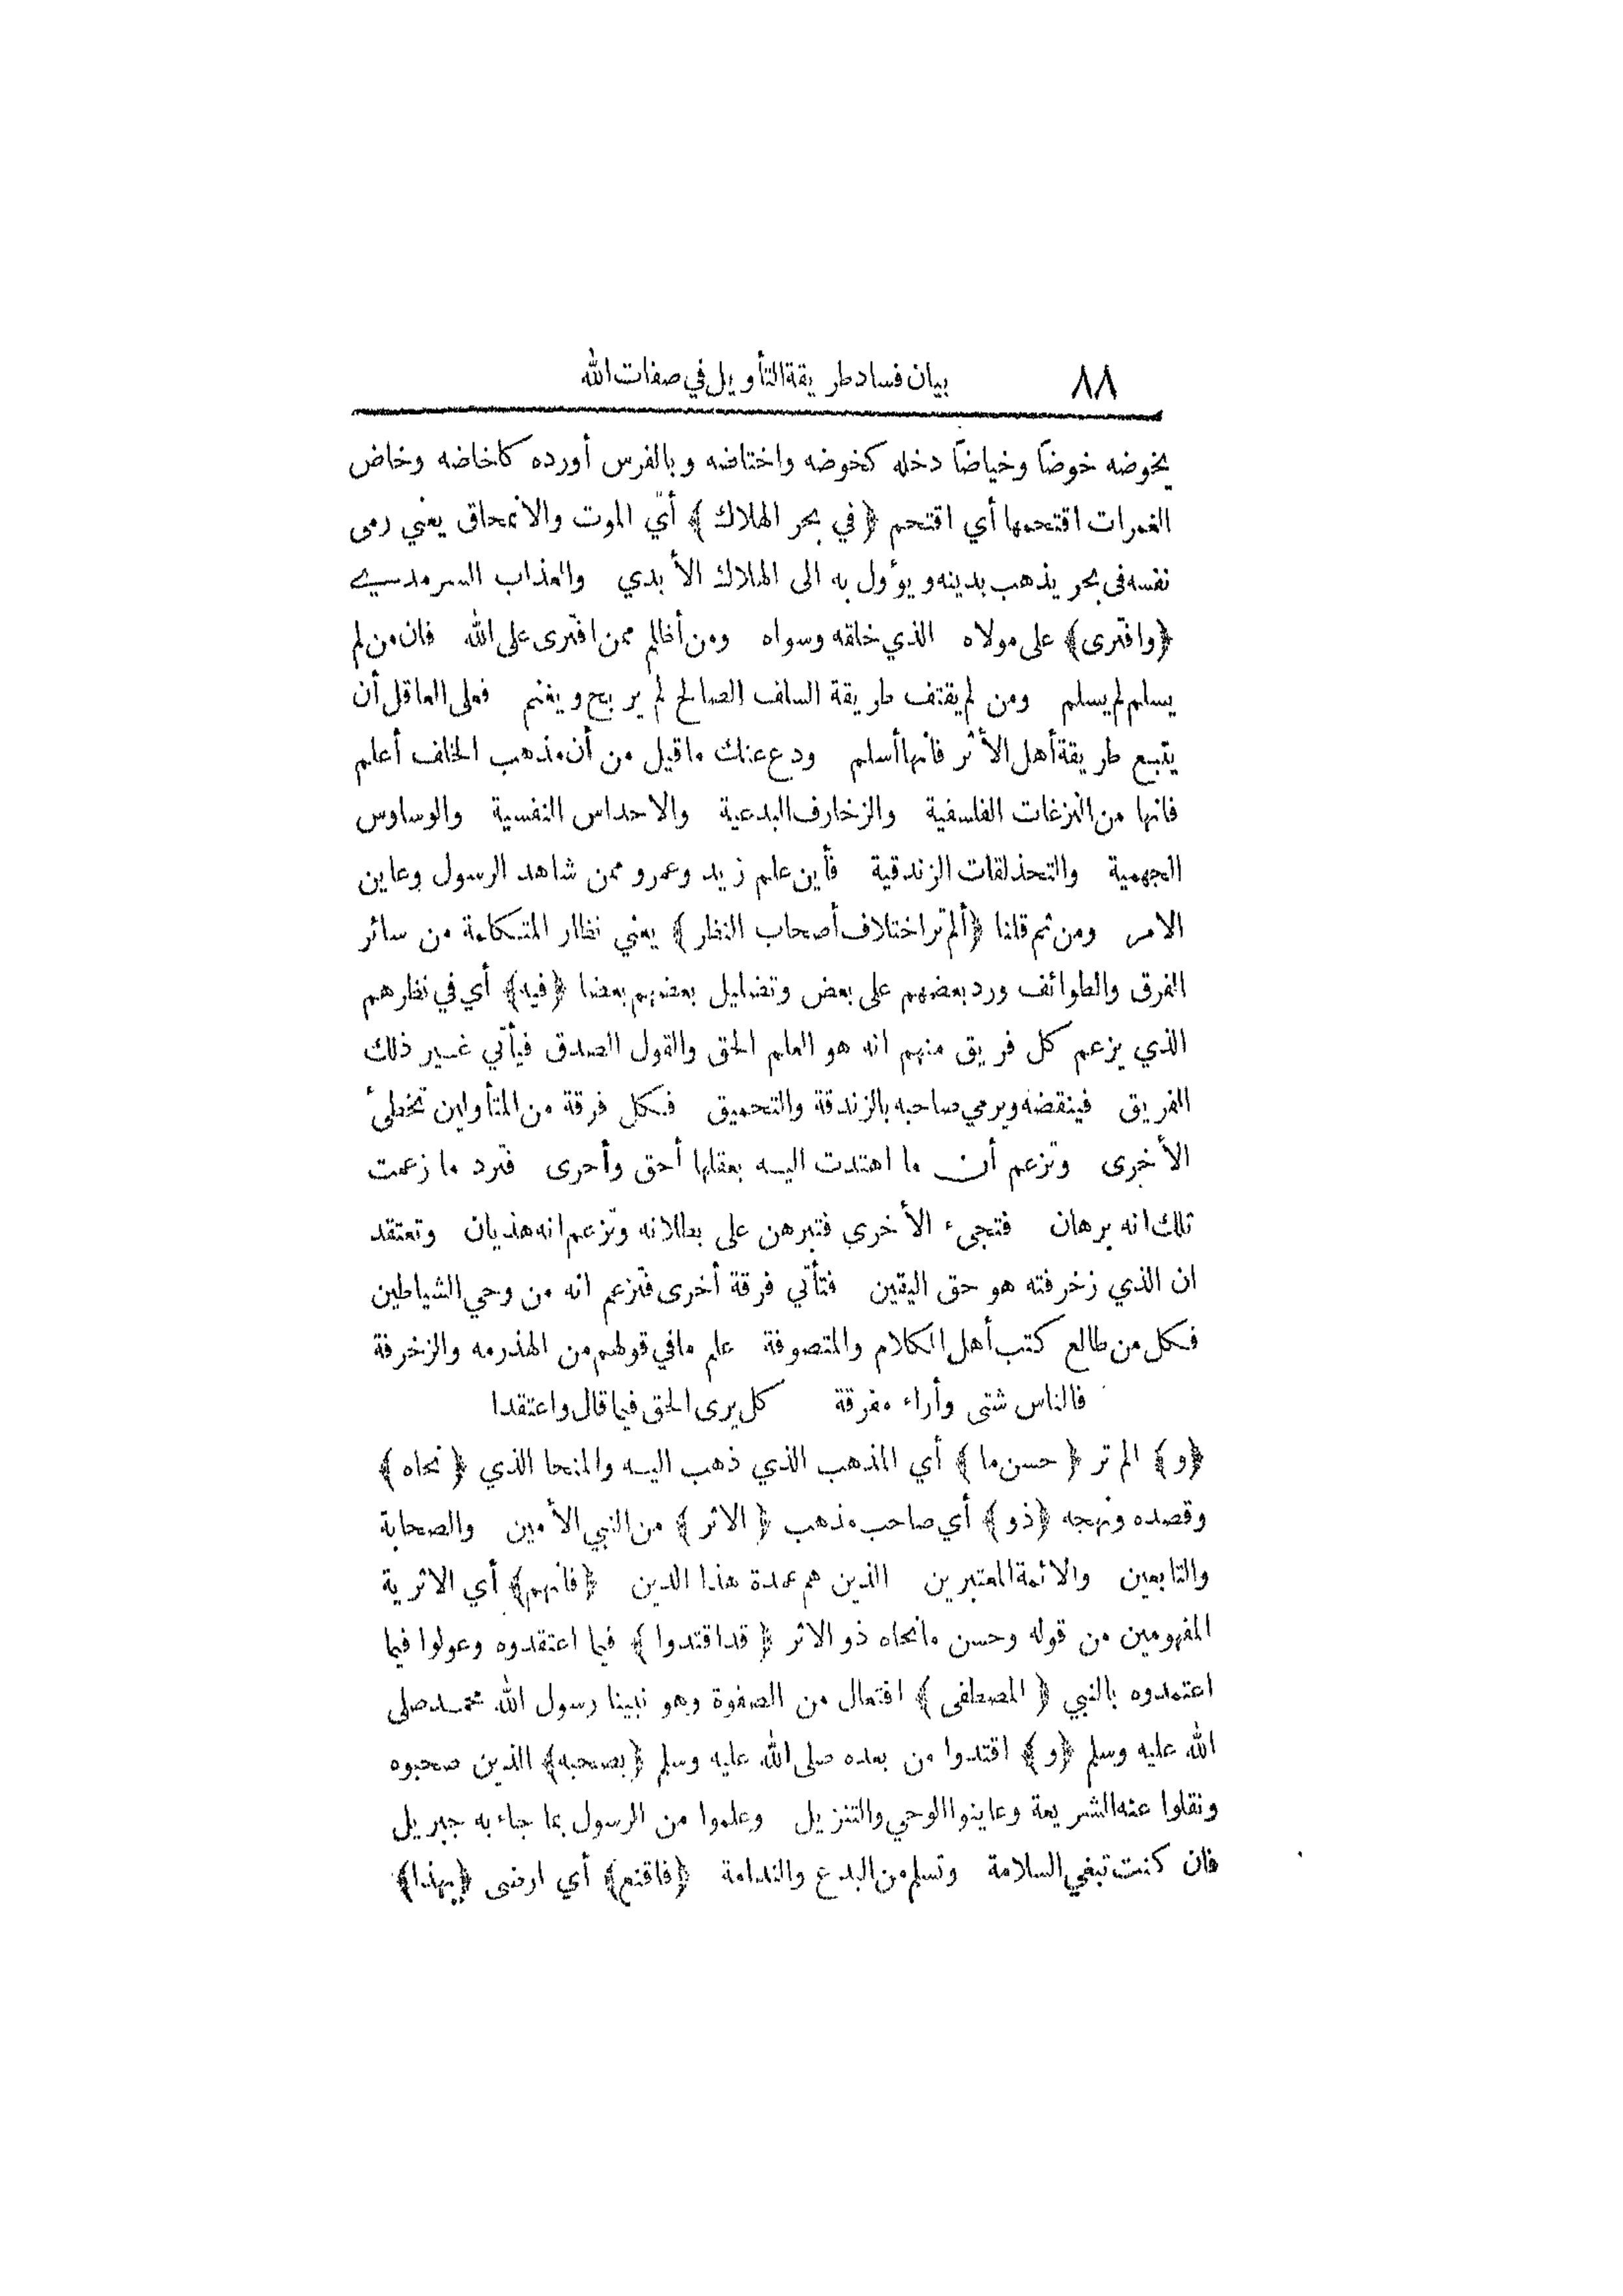 ٨٨ بيان فساد طريقة التأويل في صفات الله
يخوضه خوضاً وخياضاً دخله كخوضه واختاضه وبالفرس أورده كاخاضه وخاض
الغمرات اقتحمها أي اقتحم ﴿ في بحر الهلاك ﴾ أي الموت والانمحاق يعني رمى
نفسه فى بحر يذهب بدينه ويؤول به الى الهلاك الأبدي والعذاب السرمدي
﴿وافترى﴾ على مولاه الذي خلقه وسواه ومن أظلم ممن افترى على الله فان من لم
يسلم لم يسلم ومن لم يقتف طريقة السلف الصالح لم يربح ويغنم فعلى العاقل أن
يتبع طريقة أهل الأثر فانها أسلم ودع عنك ماقيل من أن مذهب الخلف أعلم
فانها من النزغات الفلسفية والزخارف البدعية والاحداس النفسية والوساوس
الجهمية والتحذلقات الزندقية فأين علم زيد وعمرو ممن شاهد الرسول وعاين
الامر ومن ثم قلنا ﴿ألم تر اختلاف أصحاب النظر ﴾ يعني نظار المتكلمة من سائر
الفرق والطوائف ورد بعضهم على بعض وتضليل بعضهم بعضا ﴿فيه﴾ أي في نظرهم
الذي يزعم كل فريق منهم انه هو العلم الحق والقول الصدق فيأتي غير ذلك
الفريق فينقضه ويرمي صاحبه بالزندقة والتحميق فكل فرقة من المتأولين تخطئ
الأخرى وتزعم أن ما اهتدت اليه بعقلها أحق وأحرى فترد ما زعمت
تلك انه برهان فتجيء الأخري فتبرهن على بطلانه وتزعم انه هذيان وتعتقد
ان الذي زخرفته هو حق اليقين فتأتي فرقة أخرى فتزعم انه من وحي الشياطين
فكل من طالع كتب أهل الكلام والمتصوفة علم مافي قولهم من الهذرمه والزخرفة
فالناس شتى وأراء مفرقة كل يرى الحق فيما قال واعتقدا
﴿و﴾ الم تر ﴿ حسن ما ﴾ أي المذهب الذي ذهب اليه والمنحا الذي ﴿ نحاه ﴾
وقصده ونهجه ﴿ذو﴾ أي صاحب مذهب ﴿ الاثر ﴾ من النبي الأمين والصحابة
والتابعين والائمة المعتبرين الذين هم عمدة هذا الدين ﴿فانهم﴾ أي الاثرية
المفهومين من قوله وحسن مانحاه ذو الاثر ﴿ قد اقتدوا ﴾ فيما اعتقدوه وعولوا فيما
اعتمدوه بالنبي ﴿ المصطفى ﴾ افتعال من الصفوة وهو نبينا رسول الله محمد صلى
الله عليه وسلم ﴿و﴾ اقتدوا من بعده صلى الله عليه وسلم ﴿بصحبه﴾ الذين صحبوه
ونقلوا عنه الشريعة وعاينوا الوحي والتنزيل وعلموا من الرسول بما جاء به جبريل
فان كنت تبغي السلامة وتسلم من البدع والندامة ﴿فاقنع﴾ أي ارضى ﴿بهذا﴾